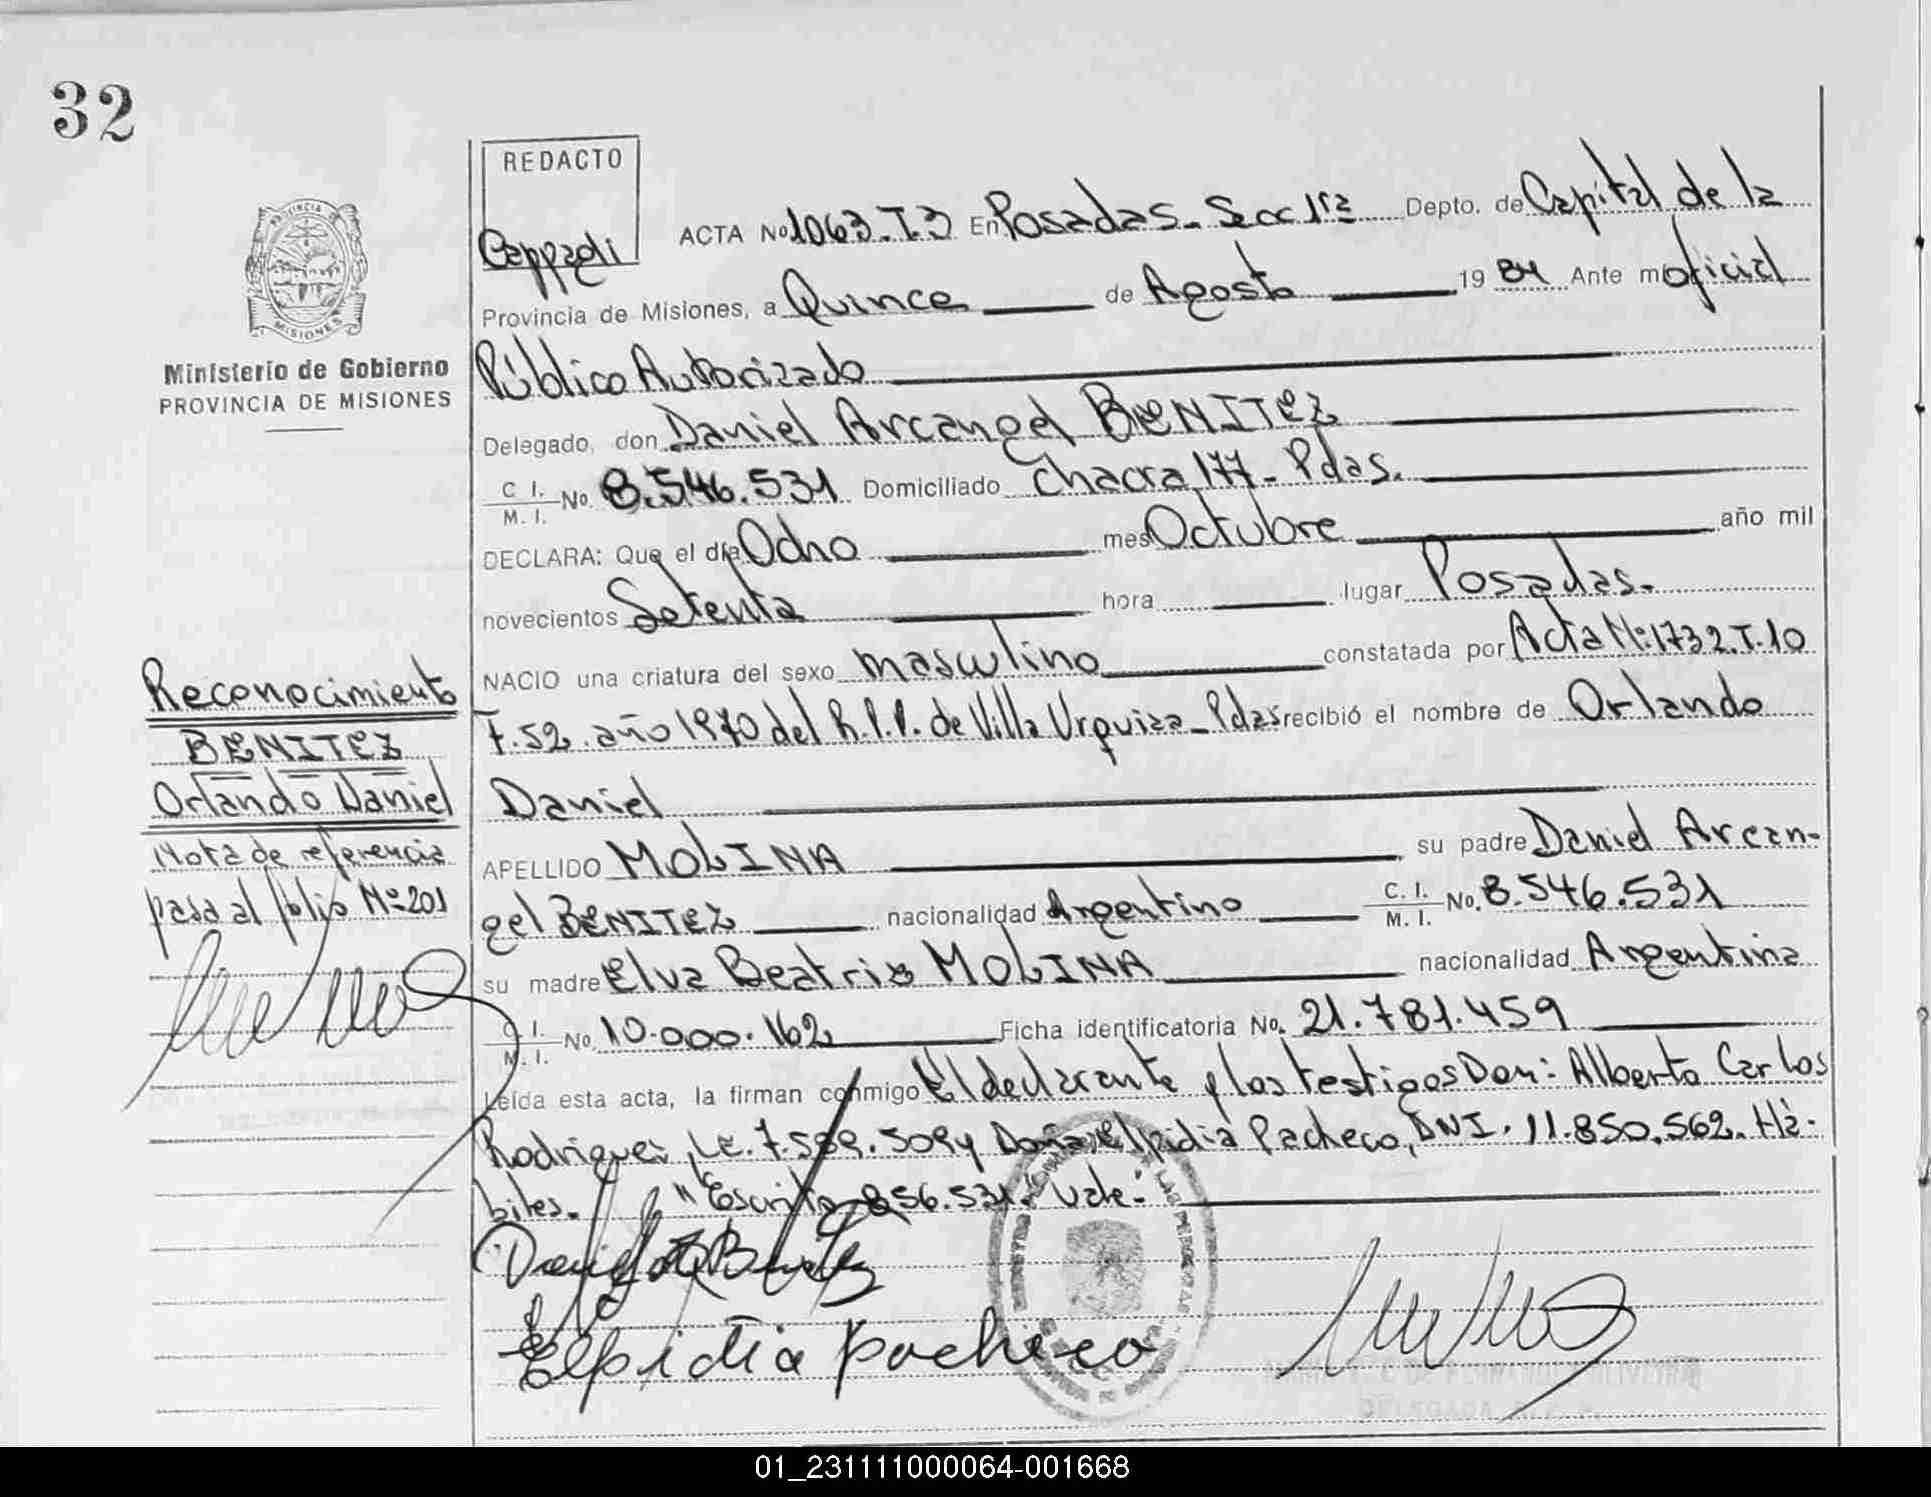 32
REDACTO
Cappadi
ACTA No 1063.T.3 En Posadas- Secc 1ra Depto. de Capital de la
PROVINCIA DE MISIONES
Provincia de Misiones, a Quince de Agosto 1984 Ante mi oficial
Ministerio de Gobierno
PROVINCIA DE MISIONES
Público Autorizado
Delegado, don Daniel Arcangel BENITEZ
C I. M. I. No. 8.546.531 Domiciliado Chacra 177- Pdas.
DECLARA: Que el día Ocho mes Octubre año mil
novecientos Setenta hora lugar Posadas.
NACIO una criatura del sexo masculino constatada por Acta Nº:1732.T.10
F.52. año 1970 del R.P.P. de Villa Urquiza- Pdas recibió el nombre de Orlando
Daniel
APELLIDO MOLINA su padre Daniel Arcan-
gel BENITEZ nacionalidad Argentino C. I. M. I. No. 8.546.531
su madre Elva Beatris MOLINA nacionalidad Argentina
C. I. M. I. No. 10.000.162 Ficha identificatoria No. 21.781.459
Leída esta acta, la firman conmigo El declarante y los testigos Don: Alberto Carlos
Rodriguez, Le. 7.589.509 y Doña: Elpidia Pacheco, DNI. 11.850.562. Há-
biles. "Escrito 856.531. Vale-
Reconocimiento
BENITEZ
Orlando Daniel
Nota de referencia
pasa al folio Nº 201
Elpidia Pacheco
01_231111000064-001668